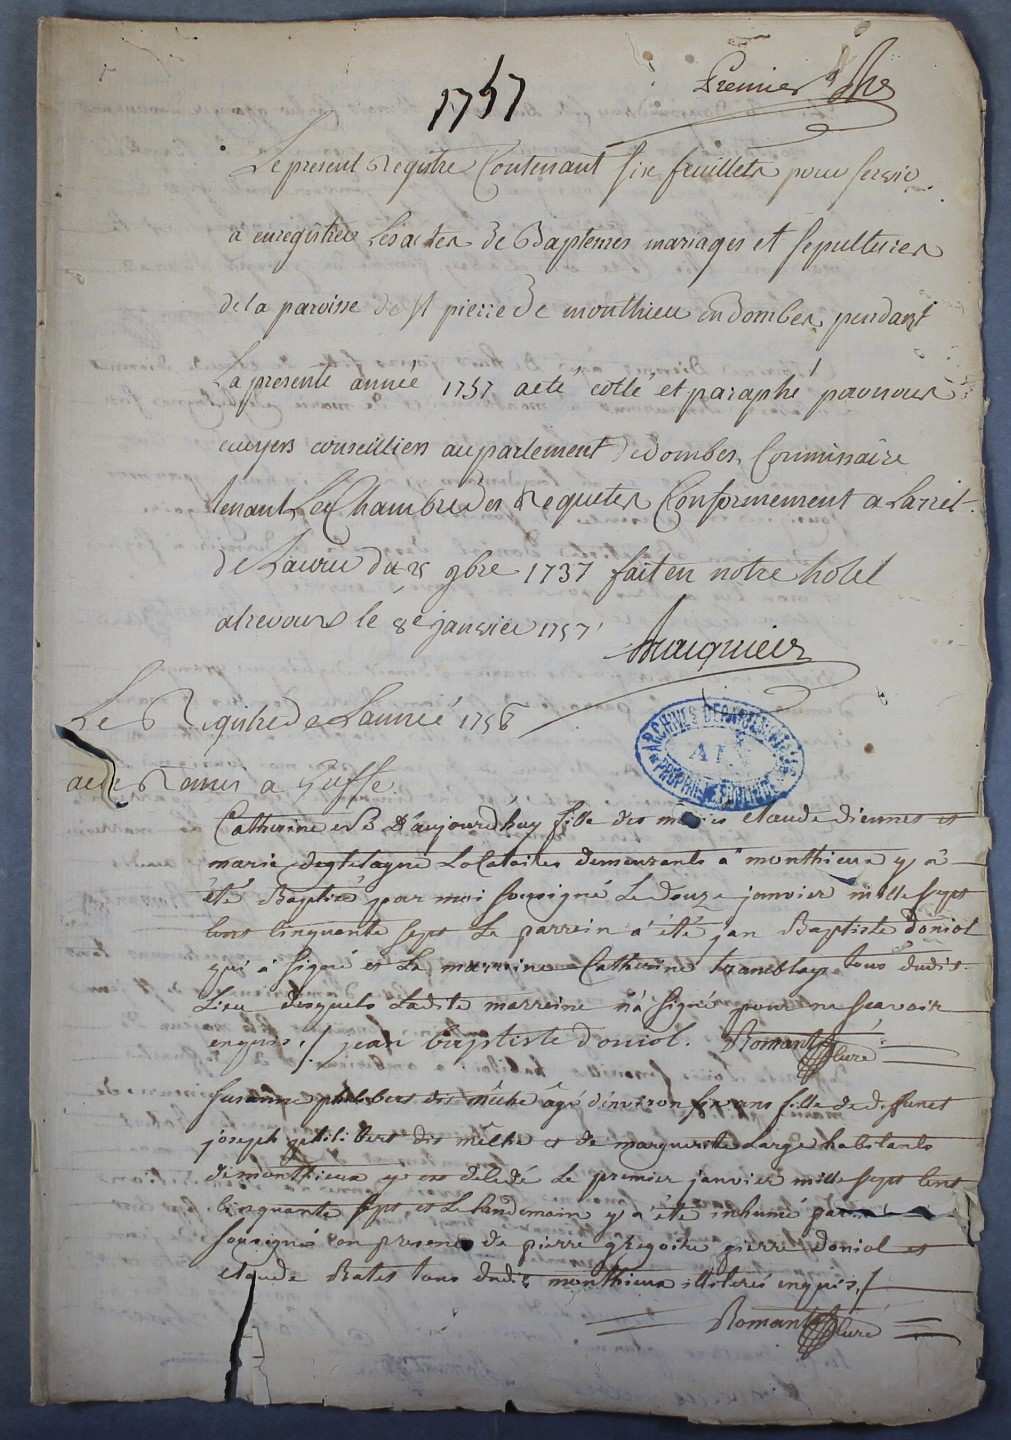 1757
Premier
Le present Registre Contenant six feuillets pour servir
a enregistrer Les actes de Baptemes mariages et sepultures
de la paroisse de st pierre de monthieu en dombes, pendant
La presente année 1757 a eté cotté et paraphé par nous
ecuyers conseilliers au parlement de dombes, Commissaire
tenant La Chambre des Requetes Conformement a Larret
de Laditte du 25 9bre 1737 fait en notre hotel
a trevoux le 8e janvier 1757
Le Registre de Lannée 1756
a été Remis a Greffe.
Catherine née D'aujourd'huy fille des mariés claude diennet et
marie Locataires demeurants a monthieux y a
été Baptisé par moi soussigné Le douze janvier mille sept
cent cinquante sept Le parrein a été jan Baptiste doniol
qui a signé et La marreine Catherine tramblay tous dudit
Lieu desquels Ladite marreine n'a signé pour ne scavoir
enquis ./ jean baptiste doniol. Romant Curé
Susanne philibert dit mêlhe âgé d'environ six ans fille de defunct
joseph philibert dit mêlhe et de marguerite Large habitants
de monthieux y est décédé Le premier janvier mille sept cent
cinquante sept et Le landemain y a été inhumé par
sousigné en presence de pierre gregoire pierre doniol et
claude Batet tous dudit monthieux illiterés enquis ./
Romant Curé
ARCHIVES DEPARTEMENTALES
AIN
PROPRIETE PUBLIQUE